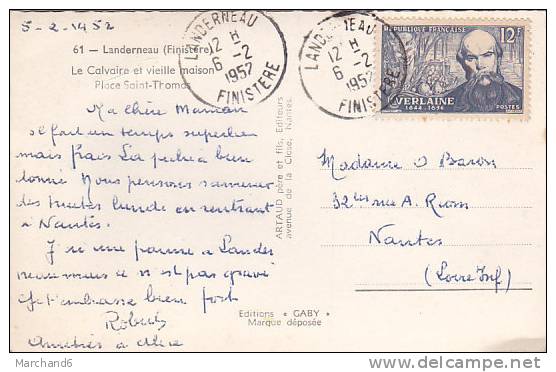 5-2-1952
61 — Landerneau (Finistère)
Le Calvaire et vieille maison
Place Saint-Thomas
LANDERNEAU
12 H
6-2
1952
FINISTERE
LANDERNEAU
12 H
6-2
1952
FINISTERE
REPUBLIQUE FRANÇAISE
12F
VERLAINE
1844-1896
POSTES
Ma chère Maman
il fait un temps superbe
mais frais La pêche a bien
donné Nous pensons ramener
des lundi en rentrant
à Nantes.
J'ai une panne à Lander
neau mais ce n'est pas grave
Je t'embrasse bien fort
Robert
Amitiés à
ARTAUD père et fils, Editeurs
avenue de la Close, Nantes.
Madame O Baron
32 rue A. Riom
Nantes
(Loire Inf)
Editions « GABY »
Marque déposée
Marchand6
http://www.delcampe.net